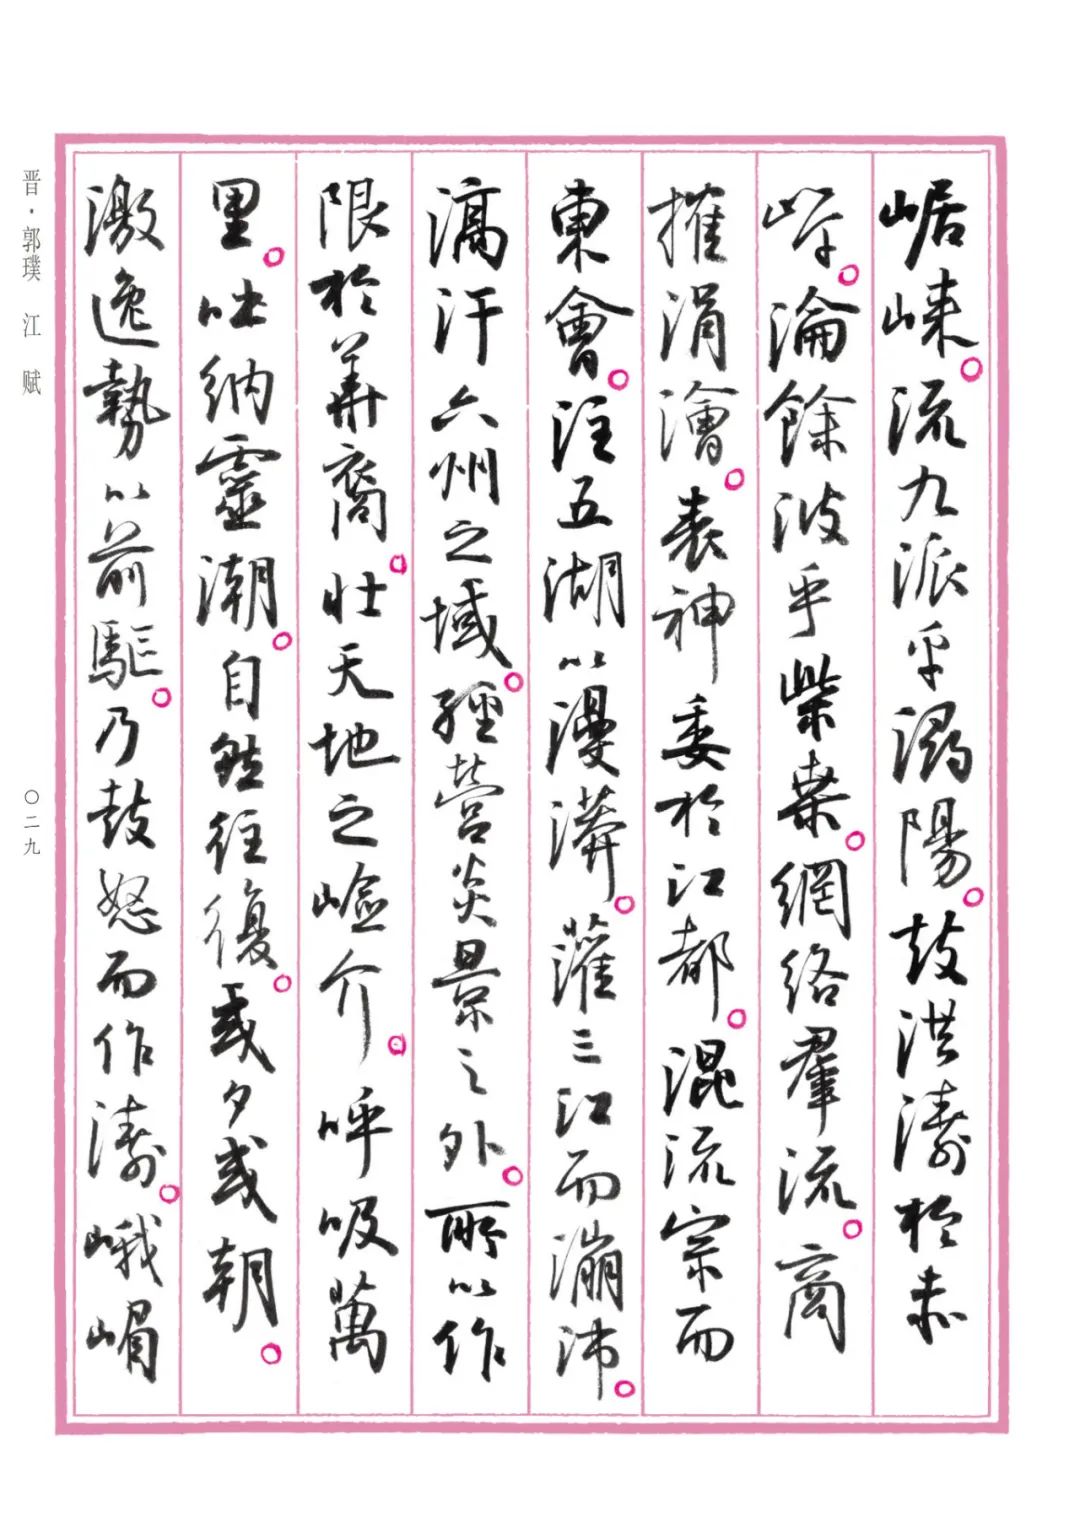 崌崍。流九派乎潯陽。鼓洪濤於赤
岸。淪餘波乎柴桑。網絡羣流。商
搉涓澮。表神委於江都。混流宗而
東會。注五湖以漫漭。灌三江而漰沛。
滈汗六州之域。經營炎景之外。所以作
限於華裔。壯天地之嶮介。呼吸萬
里。吐納靈潮。自然往復。或夕或朝。
激逸勢以前驅。乃鼓怒而作濤。峨嵋
晋·郭璞 江 赋
〇二九